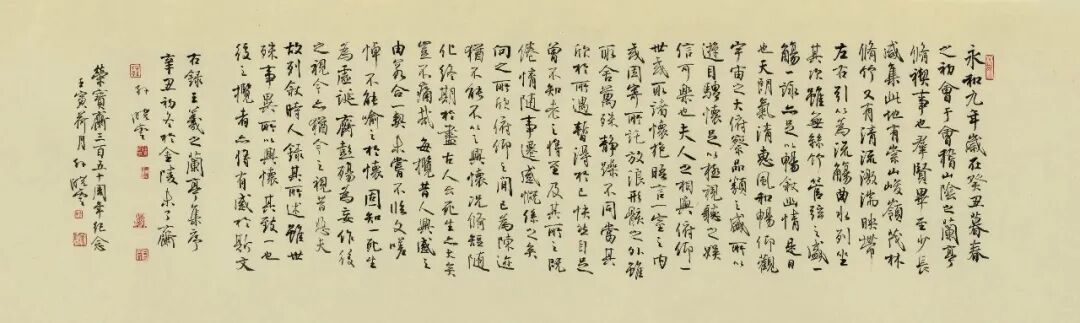 永和九年歲在癸丑暮春
之初會于會稽山陰之蘭亭
脩禊事也群賢畢至少長
咸集此地有崇山峻嶺茂林
脩竹又有清流激湍映帶
左右引以為流觴曲水列坐
其次雖無絲竹管弦之盛一
觴一詠亦足以暢敘幽情是日
也天朗氣清惠風和暢仰觀
宇宙之大俯察品類之盛所以
遊目騁懷足以極視聽之娛
信可樂也夫人之相與俯仰一
世或取諸懷抱晤言一室之內
或因寄所託放浪形骸之外雖
取舍萬殊靜躁不同當其
欣於所遇暫得於己快然自足
曾不知老之將至及其所之既
倦情隨事遷感慨係之矣
向之所欣俯仰之間已為陳迹
猶不能不以之興懷況脩短隨
化終期於盡古人云死生亦大矣
豈不痛哉每攬昔人興感之
由若合一契未嘗不臨文嗟
悼不能喻之於懷固知一死生
為虛誕齊彭殤為妄作後
之視今亦猶今之視昔悲夫
故列敘時人錄其所述雖世
殊事異所以興懷其致一也
後之攬者亦將有感於斯文
右錄王羲之蘭亭集序
辛丑初冬於金陵未了齋
孫曉雲
榮寶齋三百五十周年紀念
壬寅荷月孫曉雲